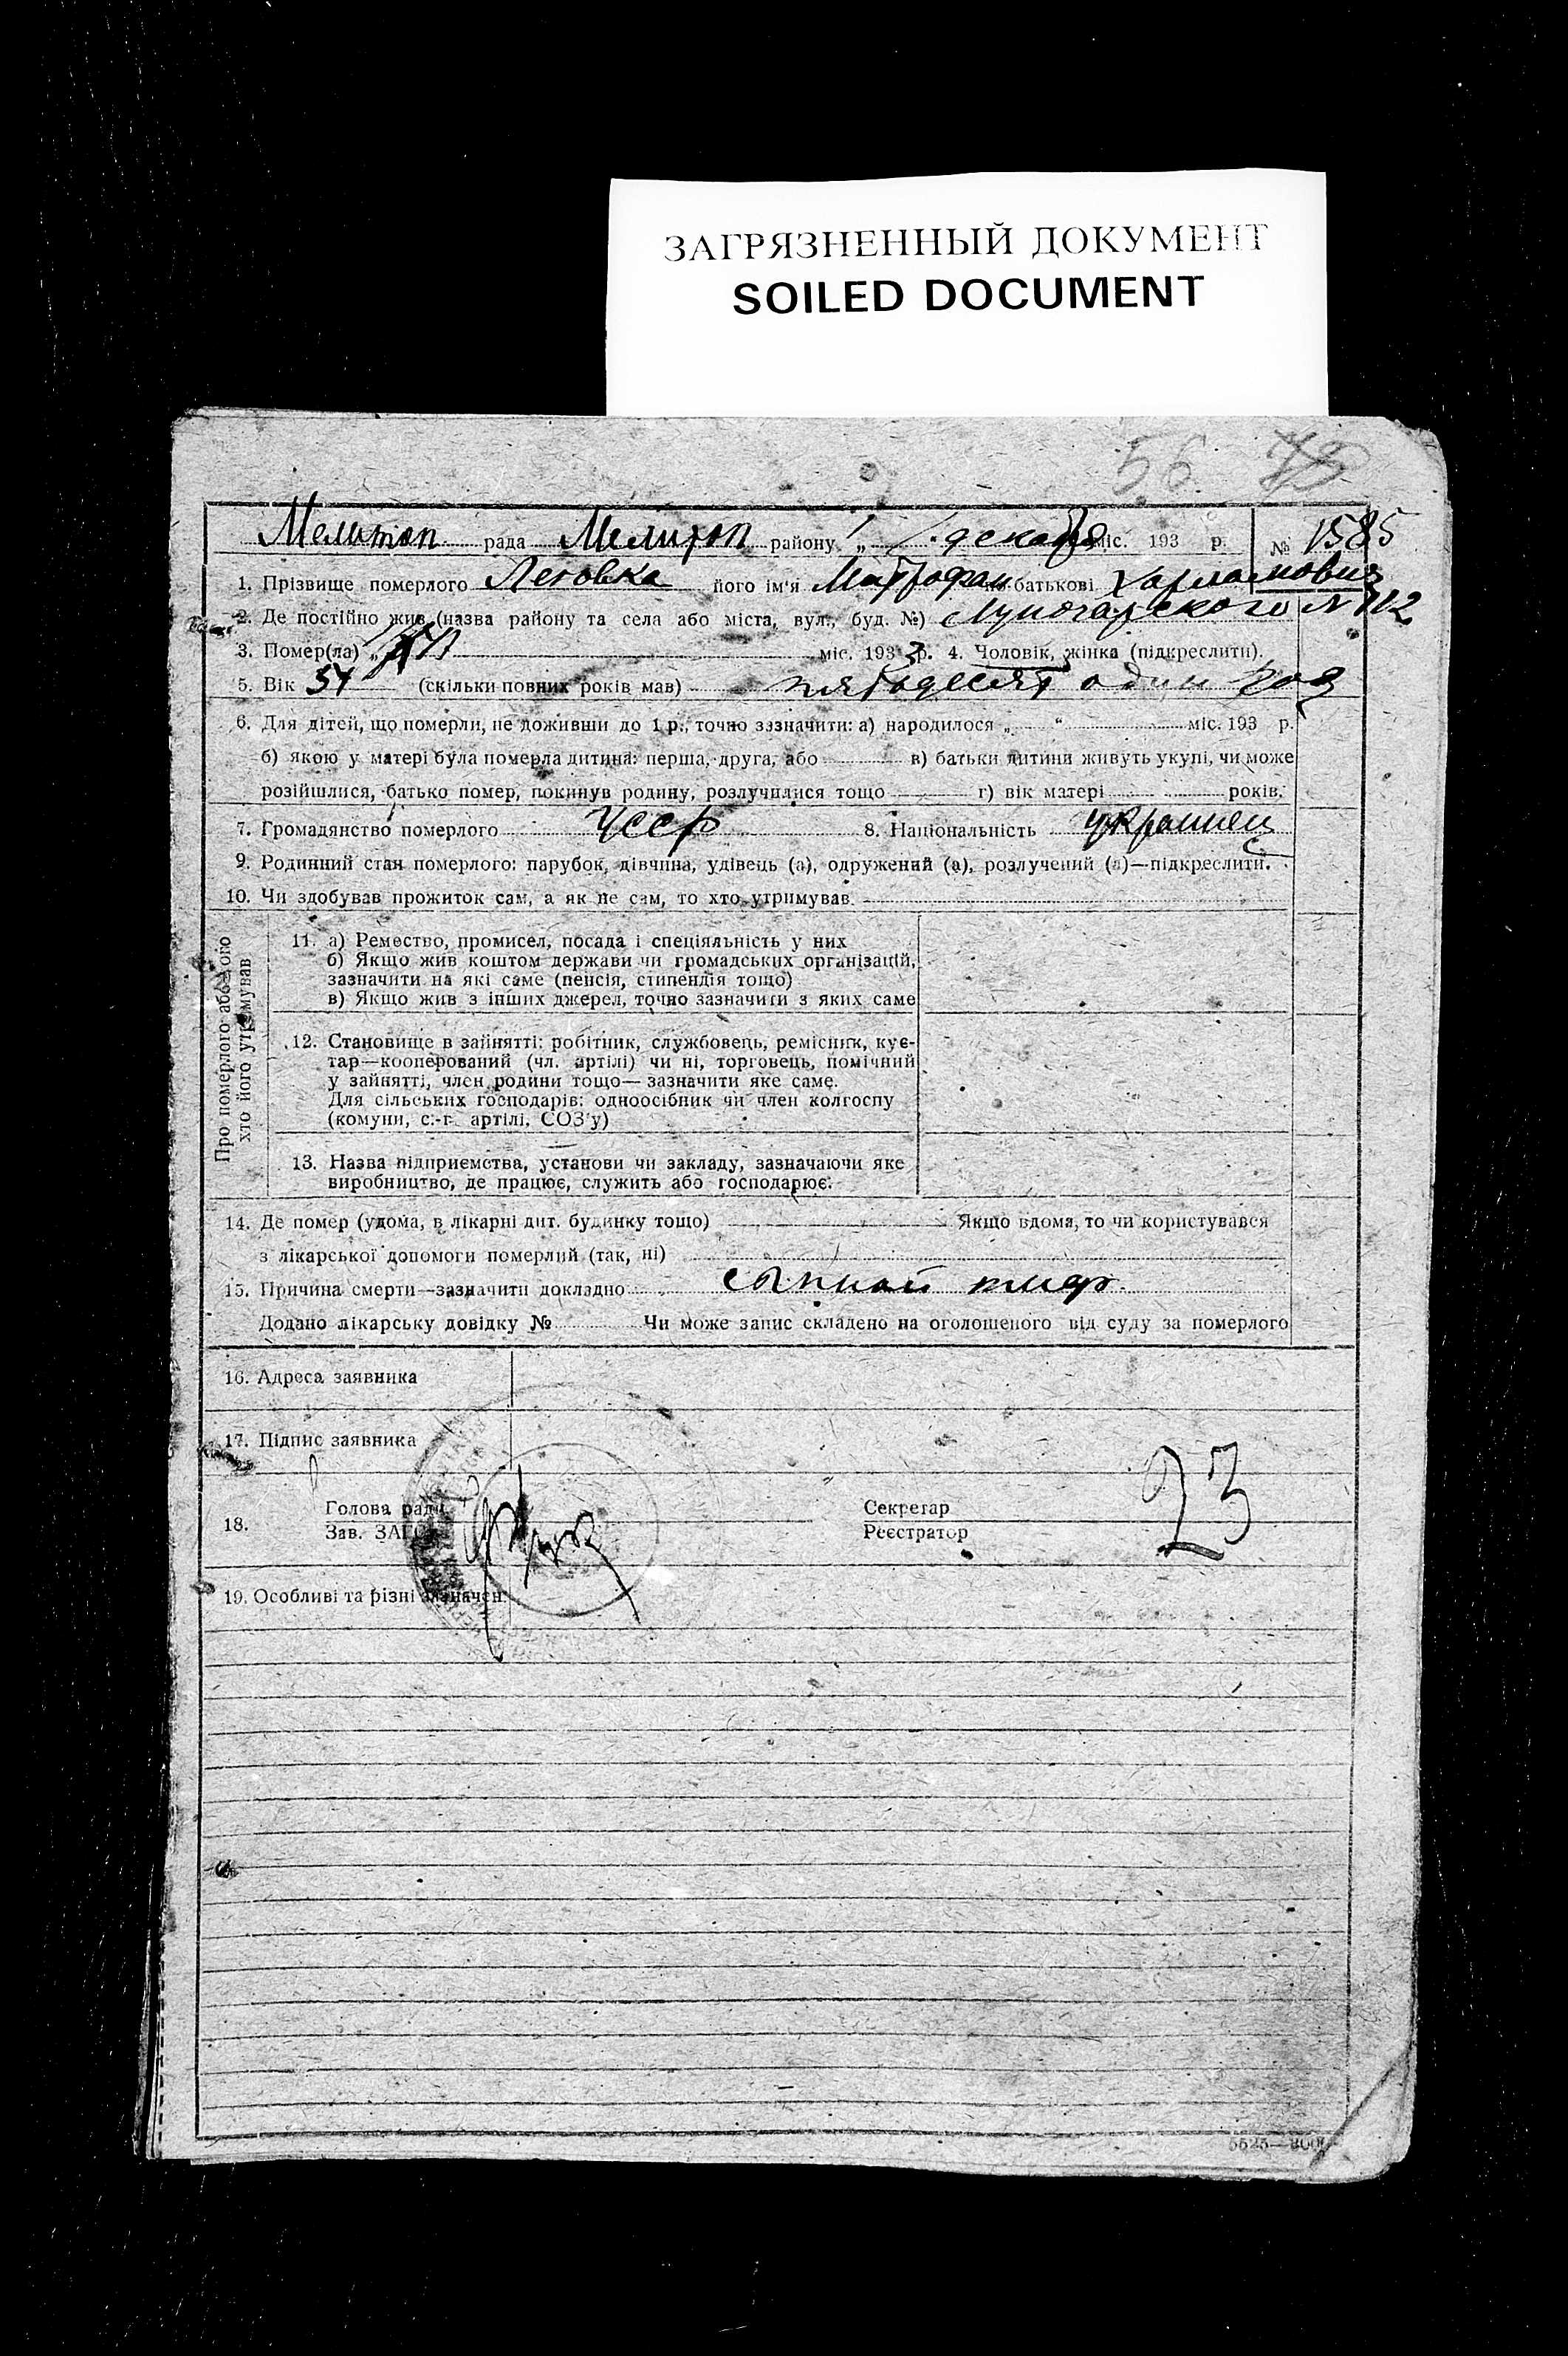 ЗАГРЯЗНЕННЫЙ ДОКУМЕНТ
SOILED DOCUMENT
56 75
Мелитоп рада Мелитоп району „ 1 декабря міс. 193 р. № 1585
1. Прізвище померлого Леговка його ім'я Митрофан по батькові Харламович
2. Де постійно жив (назва району та села або міста, вул., буд. №) Луночарского N 112
3. Помер(ла) „ міс. 1933 р. 4. Чоловік, жінка (підкреслити).
5. Вік 51 (скільки повних років мав) пятьдесят один год
6. Для дітей, що померли, не доживши до 1 р., точно зазначити: а) народилося „ “ міс. 193 р.
б) якою у матері була померла дитина: перша, друга, або в) батьки дитини живуть укупі, чи може
розійшлися, батько помер, покинув родину, розлучилися тощо г) вік матері років.
7. Громадянство померлого УССР 8. Національність украинец
9. Родинний стан померлого: парубок, дівчина, удівець (а), одружений (а), розлучений (а)—підкреслити.
10. Чи здобував прожиток сам, а як не сам, то хто утримував.
Про померлого або того
хто його утримував
11. а) Ремество, промисел, посада і спеціяльність у них
б) Якщо жив коштом держави чи громадських організацій,
зазначити на які саме (пенсія, стипендія тощо)
в) Якщо жив з інших джерел, точно зазначити з яких саме
12. Становище в зайнятті: робітник, службовець, ремісник, кус-
тар—кооперований (чл. артілі) чи ні, торговець, помічний
у зайнятті, член родини тощо— зазначити яке саме.
Для сільських господарів: одноосібник чи член колгоспу
(комуни, с.-г. артілі, СОЗ'у)
13. Назва підприємства, установи чи закладу, зазначаючи яке
виробництво, де працює, служить або господарює.
14. Де помер (удома, в лікарні дит. будинку тощо) Якщо вдома, то чи користувався
з лікарської допомоги померлий (так, ні)
15. Причина смерти—зазначити докладно сыпной тиф
Додано лікарську довідку № Чи може запис складено на оголошеного від суду за померлого
16. Адреса заявника
17. Підпис заявника
18. Голова ради Секретар
Зав. ЗАГС Реєстратор
23
19. Особливі та різні зазначен.
5525—